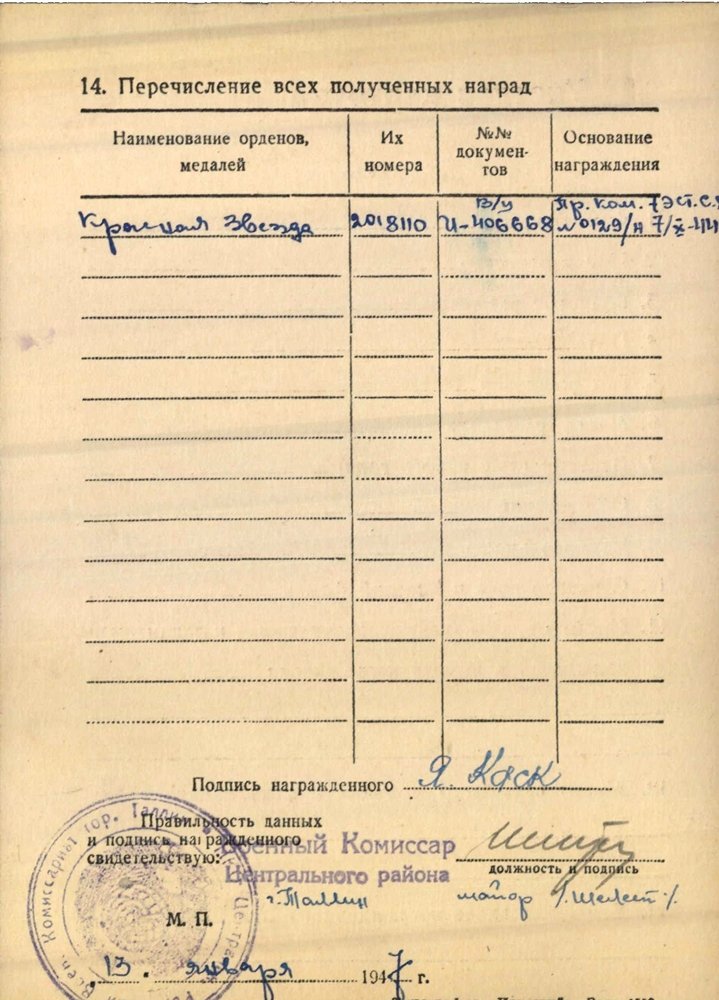 14. Перечисление всех полученных наград
Наименование орденов, медалей
Их номера
№№ докумен-тов
Основание награждения
В/у Пр. Ком. 7 Эст. С.
Красная Звезда 2018110 И-406668 №0129/н 7/X-44
Подпись награжденного Я. Каск
Правильность данных
и подпись награжденного
свидетельствую:
Военный Комиссар
Центрального района
г. Таллин
должность и подпись
майор /. Шелест ./
М. П.
Воен. Комиссариат гор. Таллин
„13„ января 1947 г.